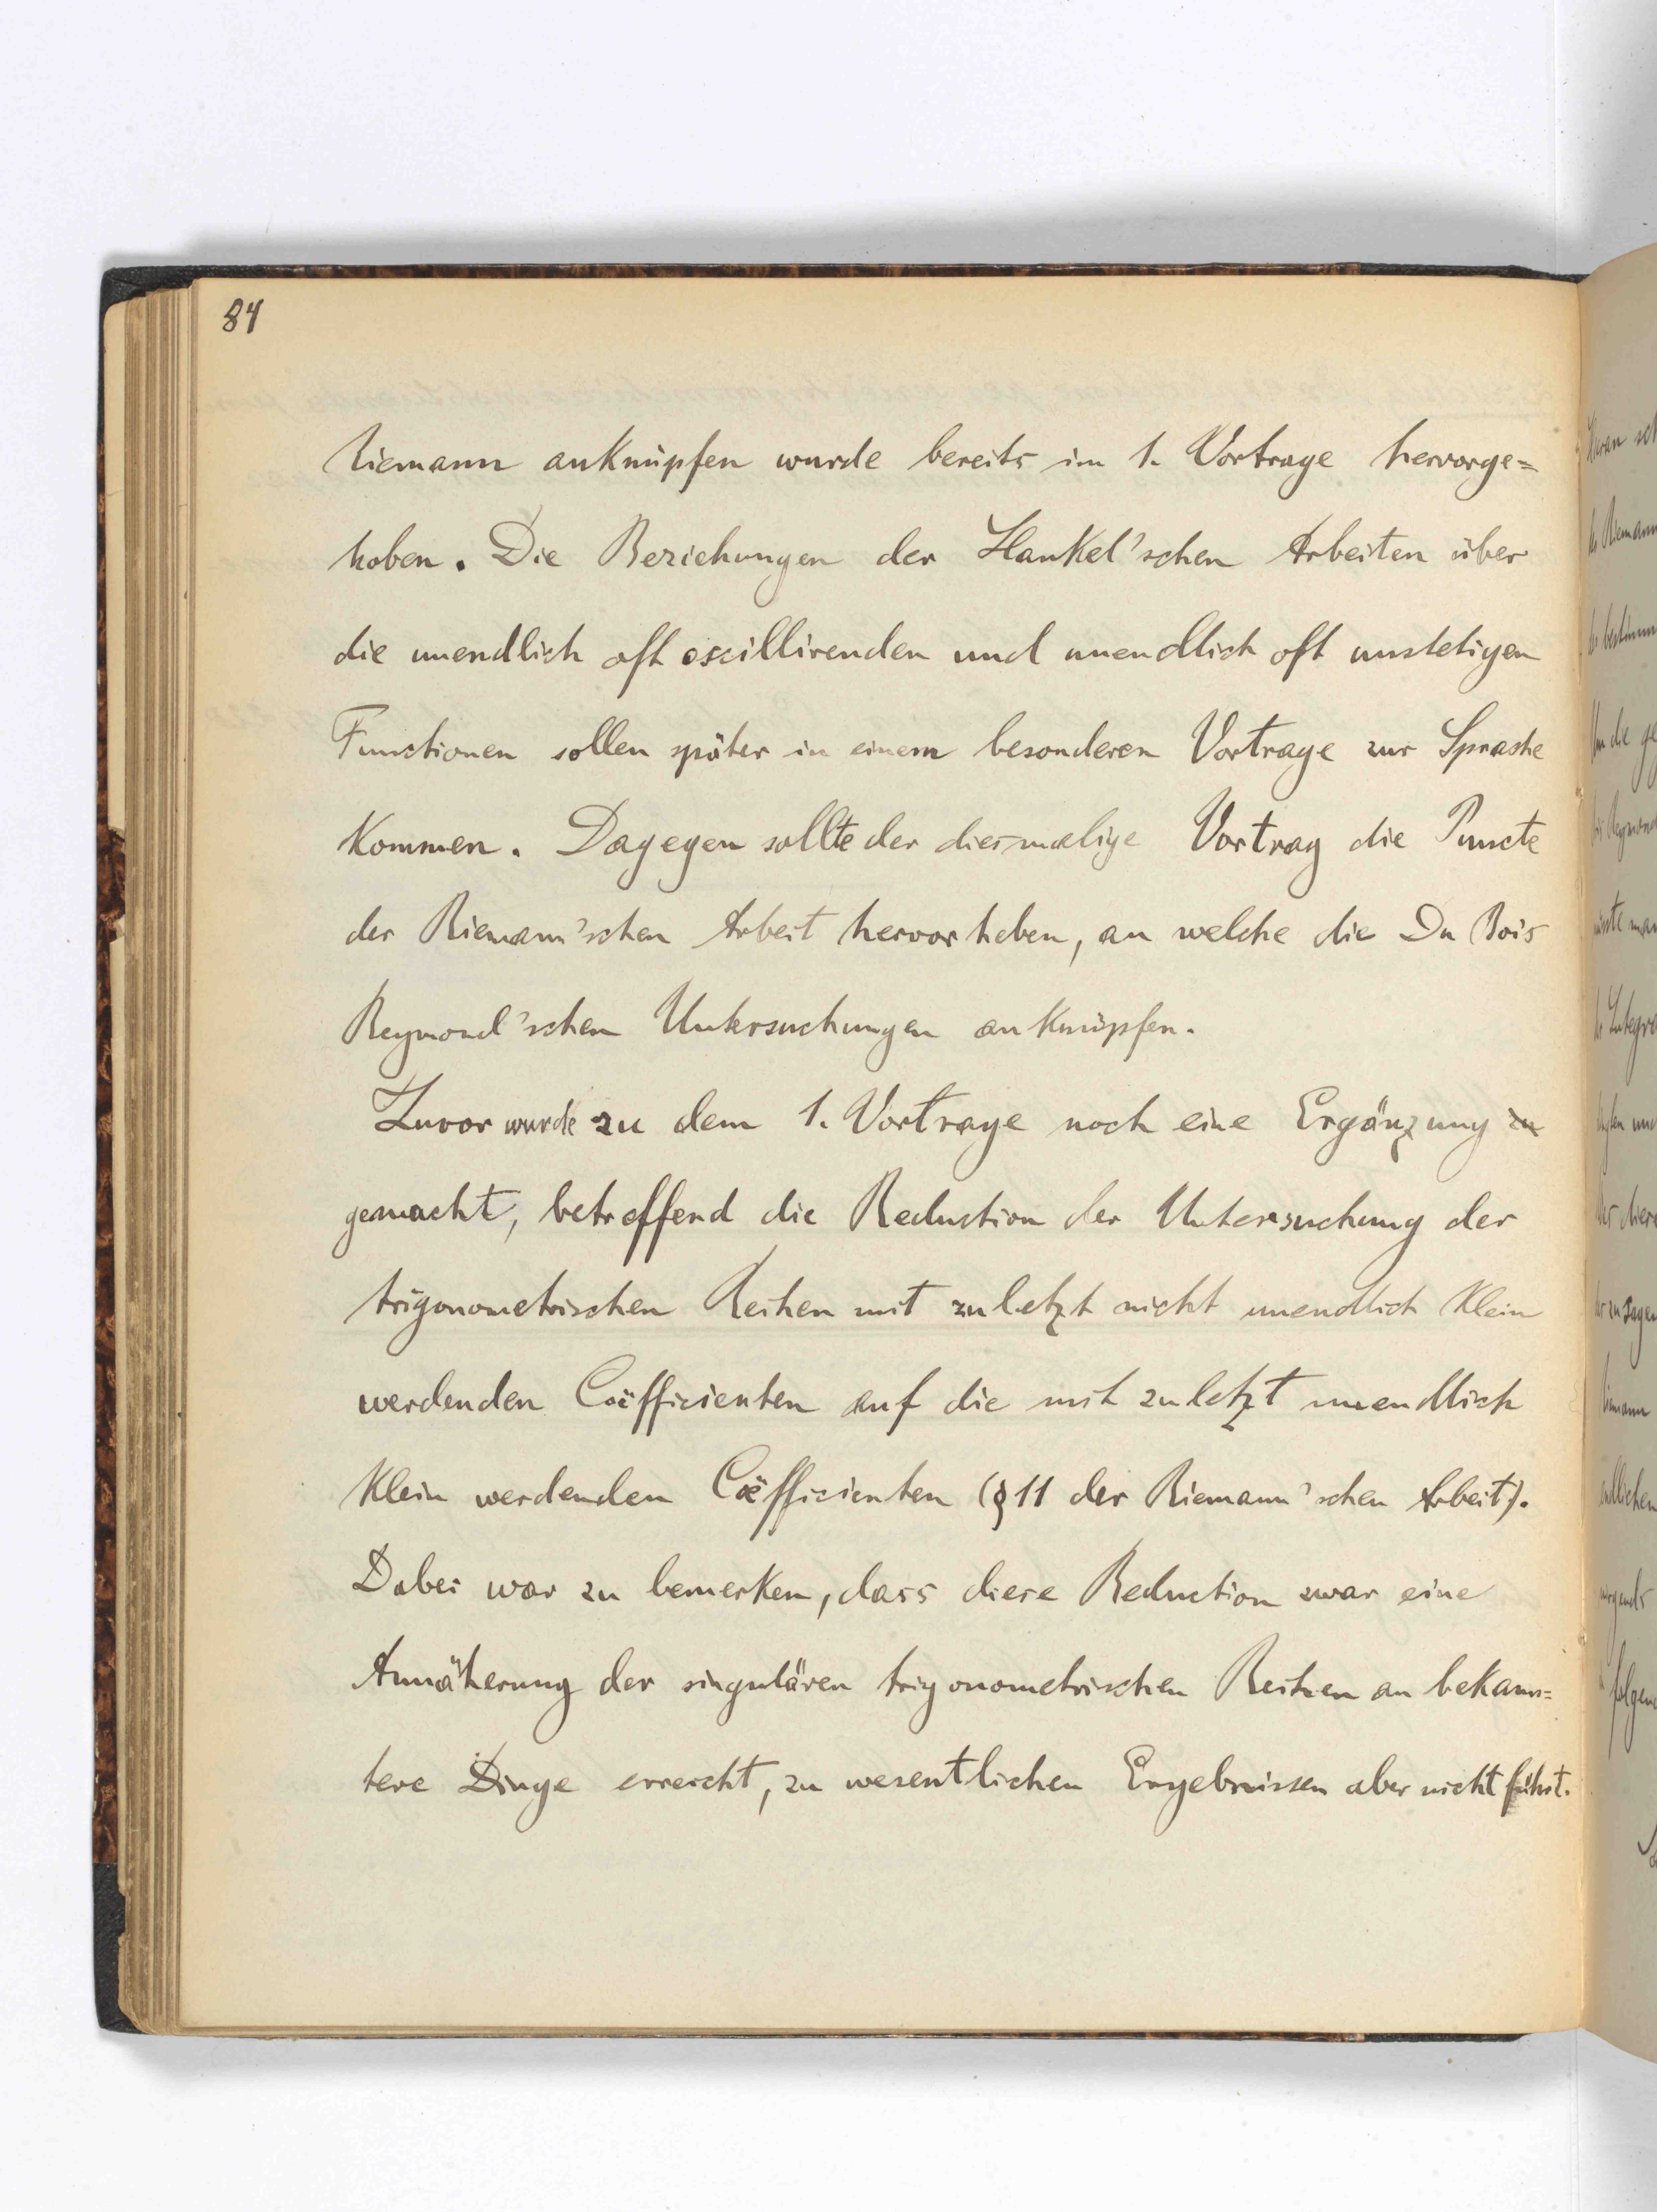 84
Riemann anknüpfen wurde bereits im 1. Vortrage hervorge=
hoben. Die Beziehungen der Hankel'schen Arbeiten über
die unendlich oft oscillirenden und unendlich oft unstetigen
Functionen sollen später in einem besonderen Vortrage zur Sprache
kommen. Dagegen sollte der diesmalige Vortrag die Puncte
der Riemann'schen Arbeit hervorheben, an welche die Du Bois
Reymond'schen Untersuchungen anknüpfen.
Zuvor wurde zu dem 1. Vortrage noch eine Ergänzung zu
gemacht, betreffend die Reduction der Untersuchung der
trigonometrischen Reihen mit zuletzt nicht unendlich klein
werdenden Coëfficienten auf die mit zuletzt unendlich
klein werdenden Coëfficienten (§ 11 der Riemann'schen Arbeit).
Dabei war zu bemerken, dass diese Reduction zwar eine
Annäherung der singulären trigonometrischen Reihen an bekann=
tere Dinge erreicht, zu wesentlichen Ergebnissen aber nicht führt.